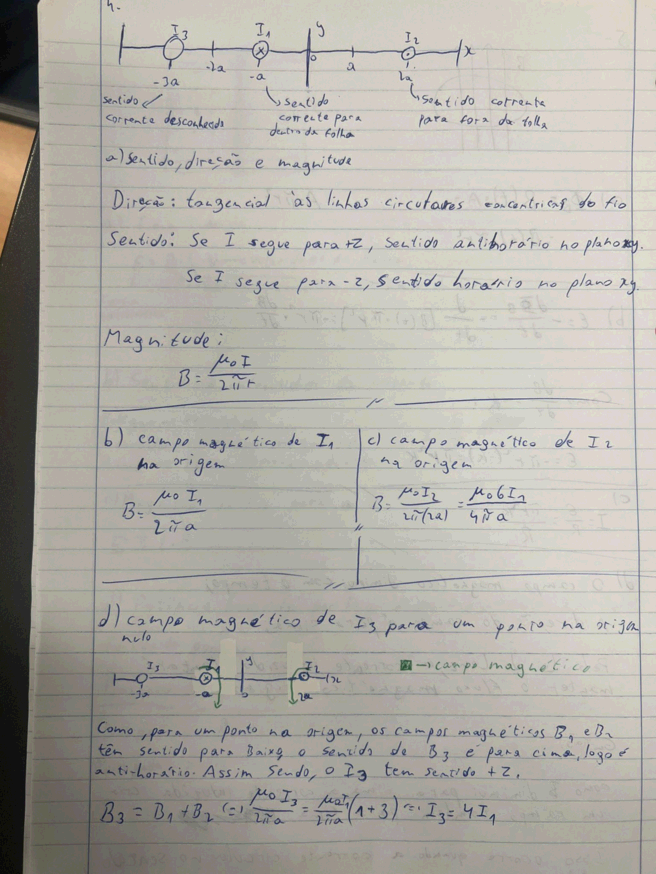 4.
I3 I1 y I2
0 a x
-3a -2a -a 2a
sentido corrente desconhecido
sentido corrente para dentro da folha
sentido corrente para fora da folha
a) sentido, direção e magnitude
Direção: tangencial às linhas circulares concentricas do fio
Sentido: Se I segue para +z, sentido antihorário no plano xy.
Se I segue para -z, sentido horário no plano xy.
Magnitude:
B = μ0 I / 2πr
b) campo magnético de I1
na origem
B = μ0 I1 / 2πa
c) campo magnético de I2
na origem
B = μ0 I2 / 2π(2a) = μ0 6I1 / 4πa
d) campo magnético de I3 para um ponto na origem
nulo
I3 I1 y I2 x
-3a -a 0 2a
→ campo magnético
Como, para um ponto na origem, os campos magnéticos B1 e B2
têm sentido para Baixo, o sentido de B3 é para cima, logo é
anti-horário. Assim sendo, o I3 tem sentido +z.
B3 = B1 + B2 (=) μ0 I3 / 2πa = μ0 I1 / 2πa (1+3) (=) I3 = 4 I1